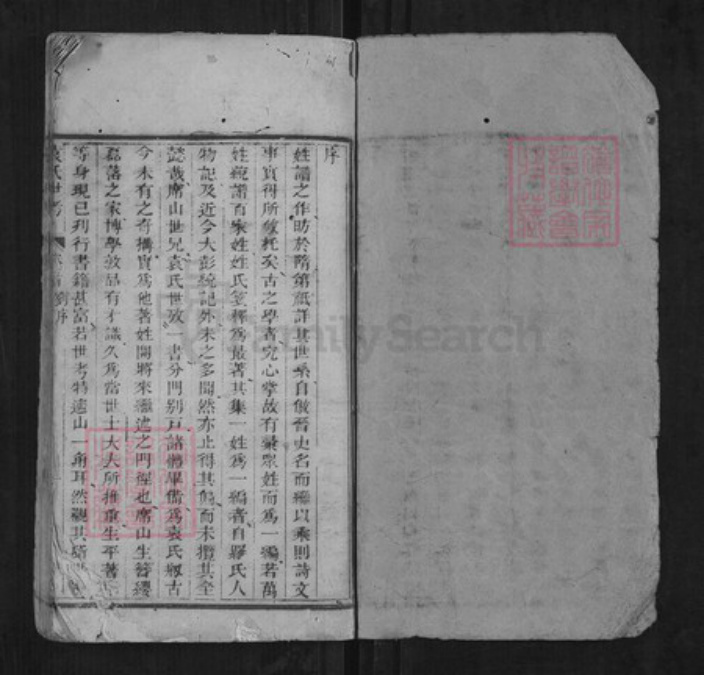 序
姓譜之作昉於隋第祗詳其世系自倣晉史名而繼以乘則詩文
事實得所攸托矣古之學者究心掌故有彙眾姓而為一編若萬
姓統譜百家姓姓氏箋釋為最著其集一姓為一編者自羅氏人
物記及近今大彭統記外未之多聞然亦止得其偏而未攬其全
懿哉席山世兄袁氏世攷一書分門別戶諸體畢備為袁氏叙古
今未有之奇搆實為他著姓開將來繼述之門徑也席山生簪纓
磊落之家博學敦品有才識久為當世士大夫所推重生平著
等身現已刊行書籍甚富若世考特遠山一角耳然觀其
袁氏世考
劉序
FamilySearch